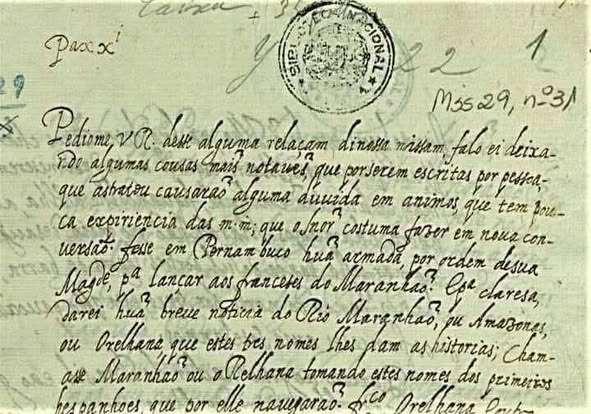 Caixa
+ 31
Pax xⁱ
BIBLIOTECA NACIONAL
22
1
29
Mss 29, nº 31
Pediome, V R. desse alguma relaçam dinossa missam, falo ei deixa-
ndo algumas cousas mais notaves, que por serem escritas por pessoa,
que as tratou causarão alguma duvida em animos, que tem pou-
ca expiriencia das m.m; que o Snor costuma fazer em nova con-
versão. fesse em Pernambuco huã armada, por ordem de sua
Magde, pª lançar aos franceses do Maranhão. E pª claresa,
darei huã breve noticia do Rio Maranhão, ou Amazonas,
ou Orelhana que estes tres nomes lhes dam as historias; Cham-
asse Maranhão ou o Relhana tomando estes nomes dos primeiros
hespanhoes, que por elle navegarão. frco Orelhana